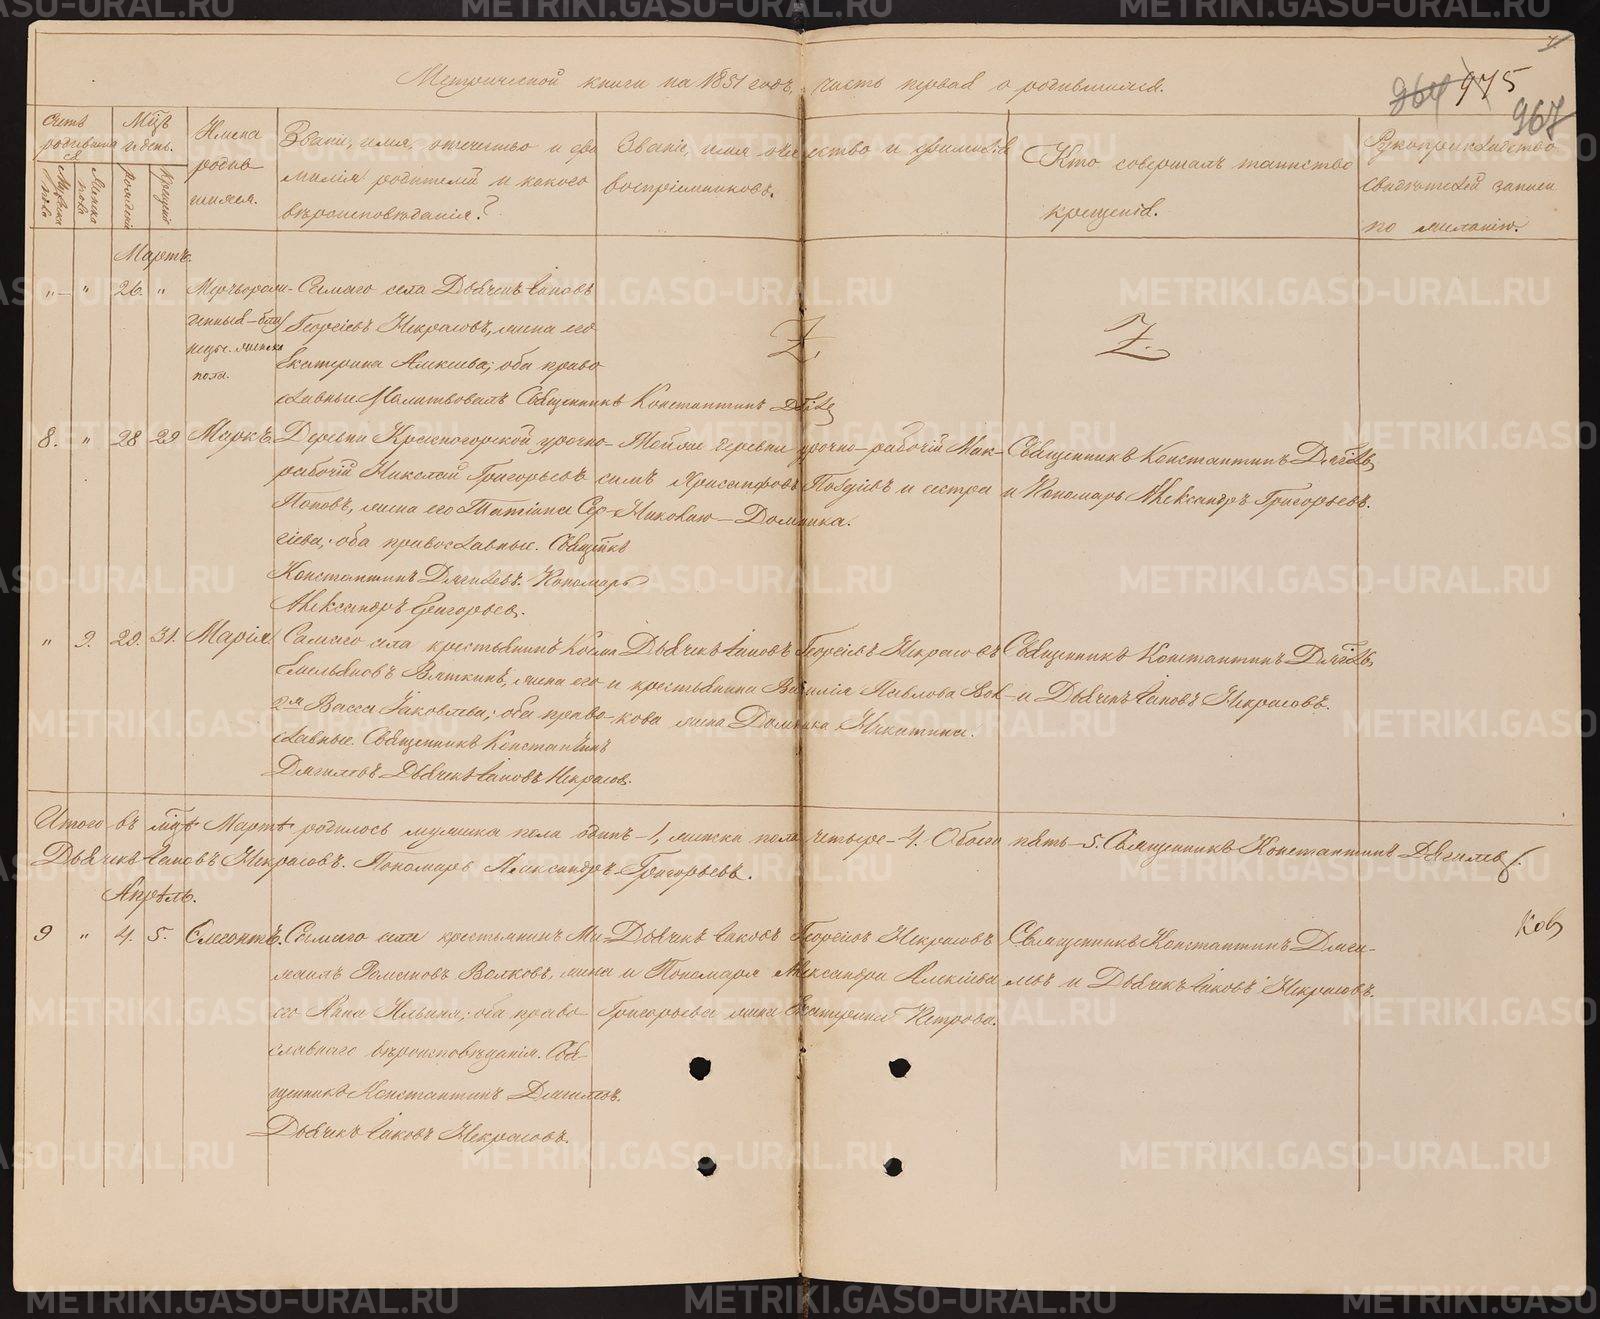 Метрической книги на 1851 годъ, часть первая о родившихся.
975
967
Счетъ родившихся
Мужеска пола
Женска пола
Мцъ и день.
рожденія
крещенія
Имена родившихся.
Званіе, имя, отчество и фамилія родителей и какого вѣроисповѣданія?
Званіе, имя отчество и фамилія воспріемниковъ.
Кто совершалъ таинство крещенія.
Рукоприкладство свидѣтелей записи по желанію.
Мартъ.
" " 26. " Мертворожденный
женска пола.
Самаго села Дьячекъ Іаковъ
Георгіевъ Некрасовъ, жена его
Екатерина Алексіева; оба православные Молитвовалъ Священникъ Константинъ
8. " 28 29 Маркъ.
Деревни Красногорской урочнорабочій Николай Григорьевъ сынъ
Поповъ, жена его Татіана Сергіева; оба православные. Священникъ
Константинъ Дягилевъ. Пономарь
Александръ Григорьевъ.
Тойже деревни урочно-рабочій
и сестра
Николаю Домника.
Священникъ Константинъ Дягилевъ
и Пономарь Александръ Григорьевъ.
" 9. 29. 31. Марія.
Самаго села крестьянинъ Козма
Емельяновъ Вяткинъ, жена его
2я Васса Іаковлева; оба православные. Священникъ Константинъ
Дягилевъ Дьячекъ Іаковъ Некрасов.
Дьячекъ Іаковъ Георгіевъ Некрасовъ
и крестьянина Василія Павлова Волкова жена Домника Никитина.
Священникъ Константинъ Дягилевъ
и Дьячекъ Іаковъ Некрасовъ.
Итого въ мцѣ Мартѣ родилось мужеска пола одинъ-1, женска пола четыре-4. Обоего пять-5. Священникъ Константинъ Дягилевъ.
Дьячекъ Іаковъ Некрасовъ. Пономарь Александръ Григорьевъ.
Апрѣль.
9 " 4. 5.
Самаго села крестьянинъ Михаилъ Романовъ Волковъ, жена
его Анна Ильина; оба православнаго вѣроисповѣданія. Священникъ Константинъ Дягилевъ.
Дьячекъ Іаковъ Некрасовъ.
Дьячекъ Іаковъ Георгіевъ Некрасовъ
и Пономаря Александра Алексіева
Григорьева жена Екатерина Петрова.
Священникъ Константинъ Дягилевъ и Дьячекъ Іаковъ Некрасовъ.
METRIKI.GASO-URAL.RU